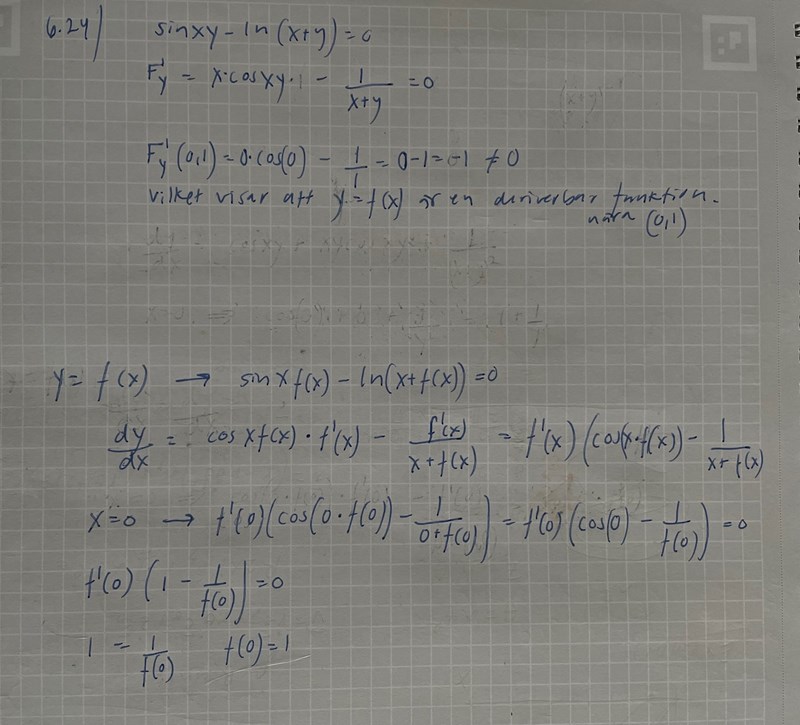 6.24) sinxy - ln(x+y) = 0
F'y = x·cosxy·1 - 1/(x+y) = 0
F'y(0,1) = 0·cos(0) - 1/1 = 0-1 = -1 ≠ 0
vilket visar att y = f(x) är en deriverbar funktion.
nära (0,1)
y = f(x) → sinx f(x) - ln(x+f(x)) = 0
dy/dx = cos xf(x) · f'(x) - f'(x)/(x+f(x)) = f'(x) (cos(x·f(x)) - 1/(x+f(x))
x=0 → f'(0)(cos(0·f(0)) - 1/(0+f(0))) = f'(0)(cos(0) - 1/f(0)) = 0
f'(0) (1 - 1/f(0)) = 0
1 = 1/f(0) f(0) = 1